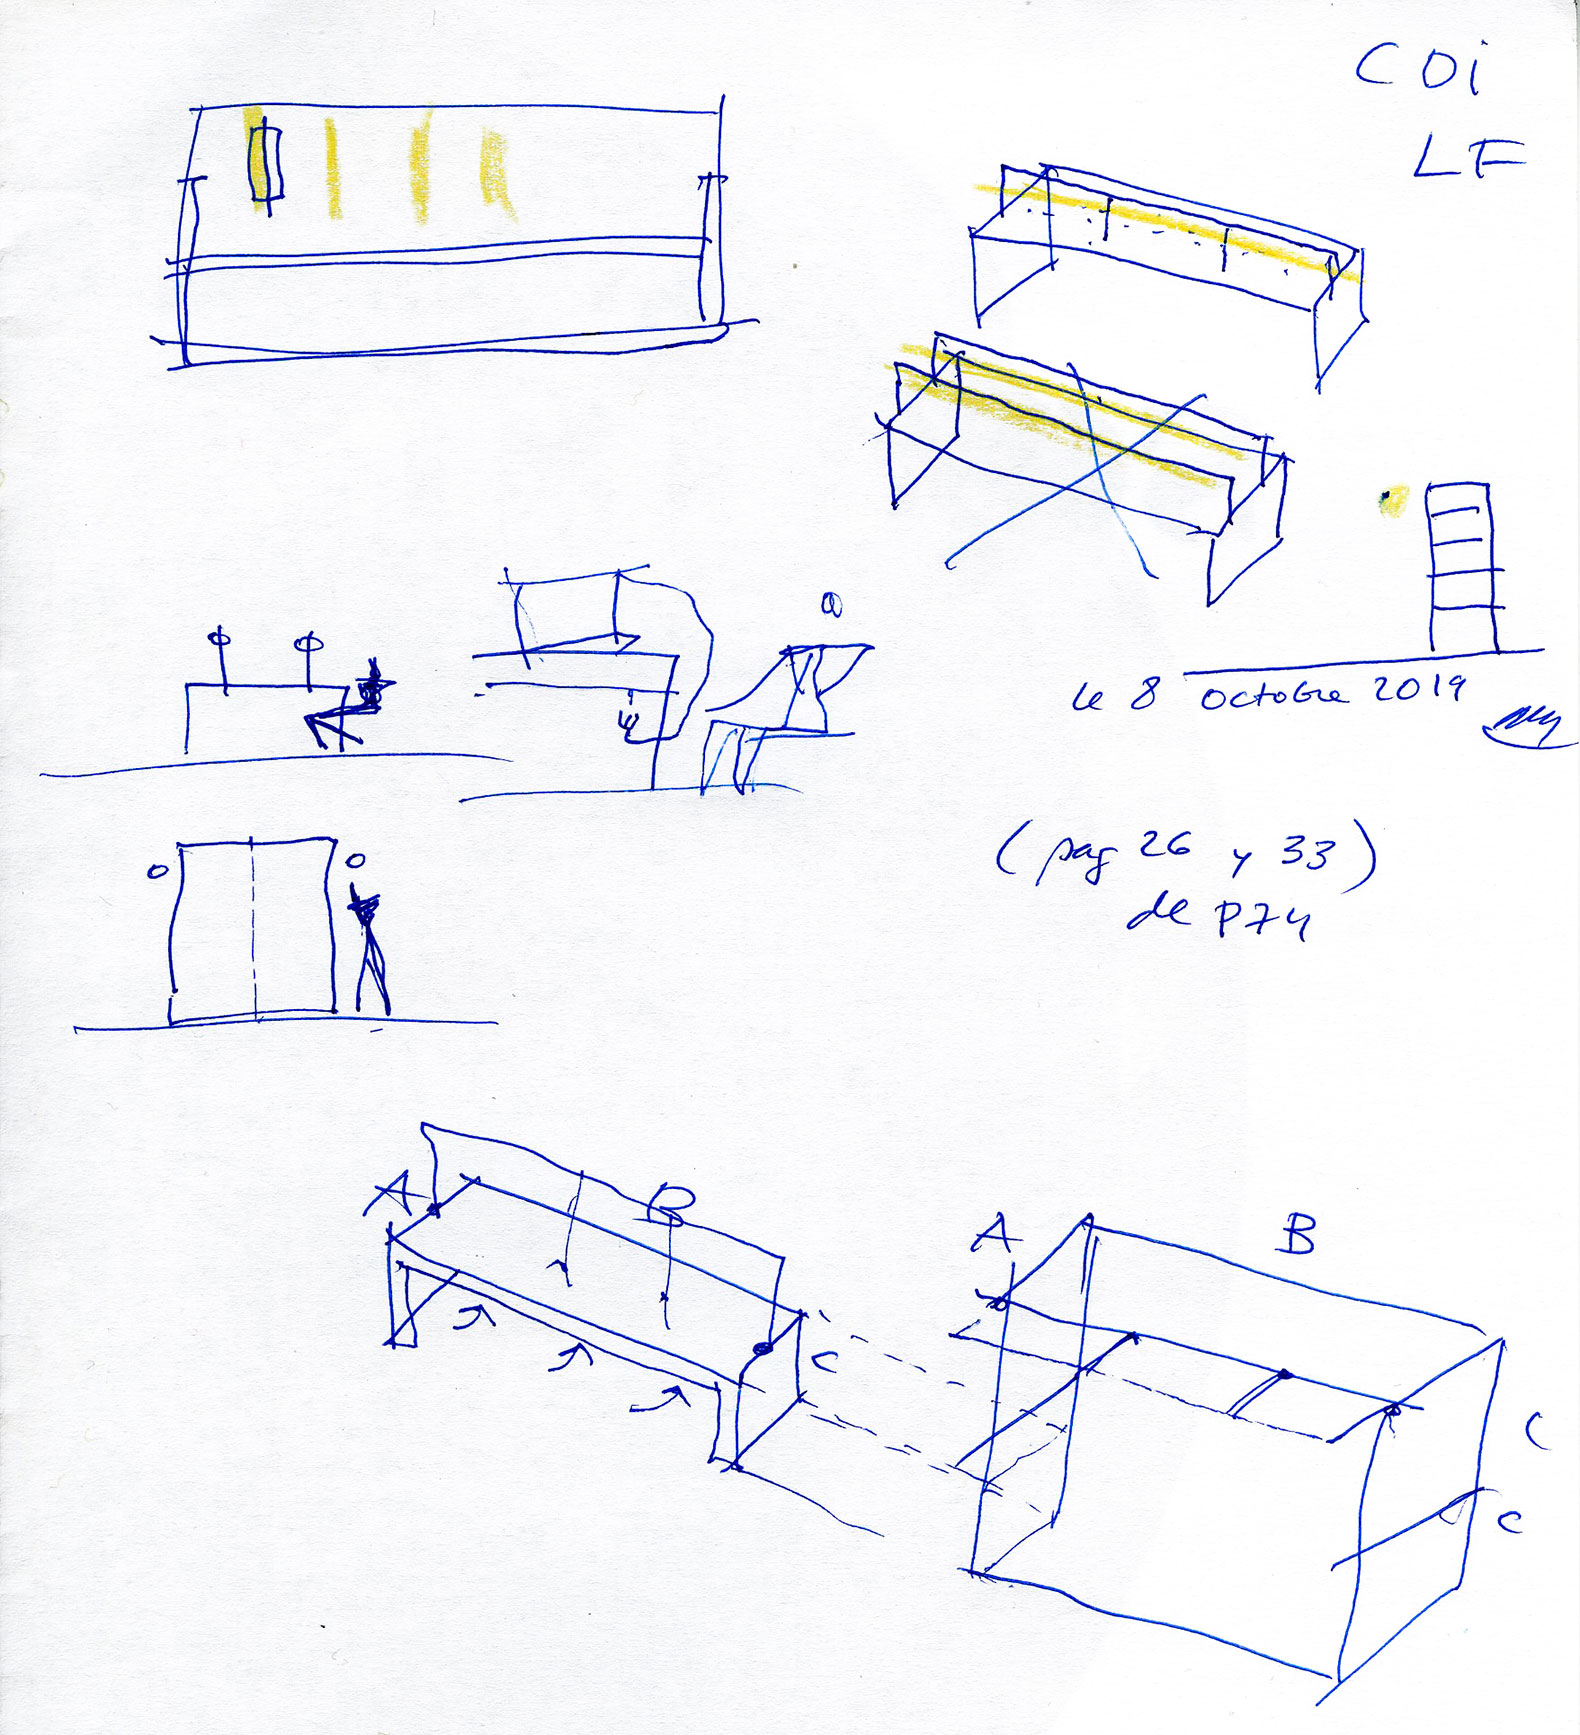 COi
LF
le 8 octobre 2019
(pag 26 y 33)
de P74
A
B
C
A
B
C
C